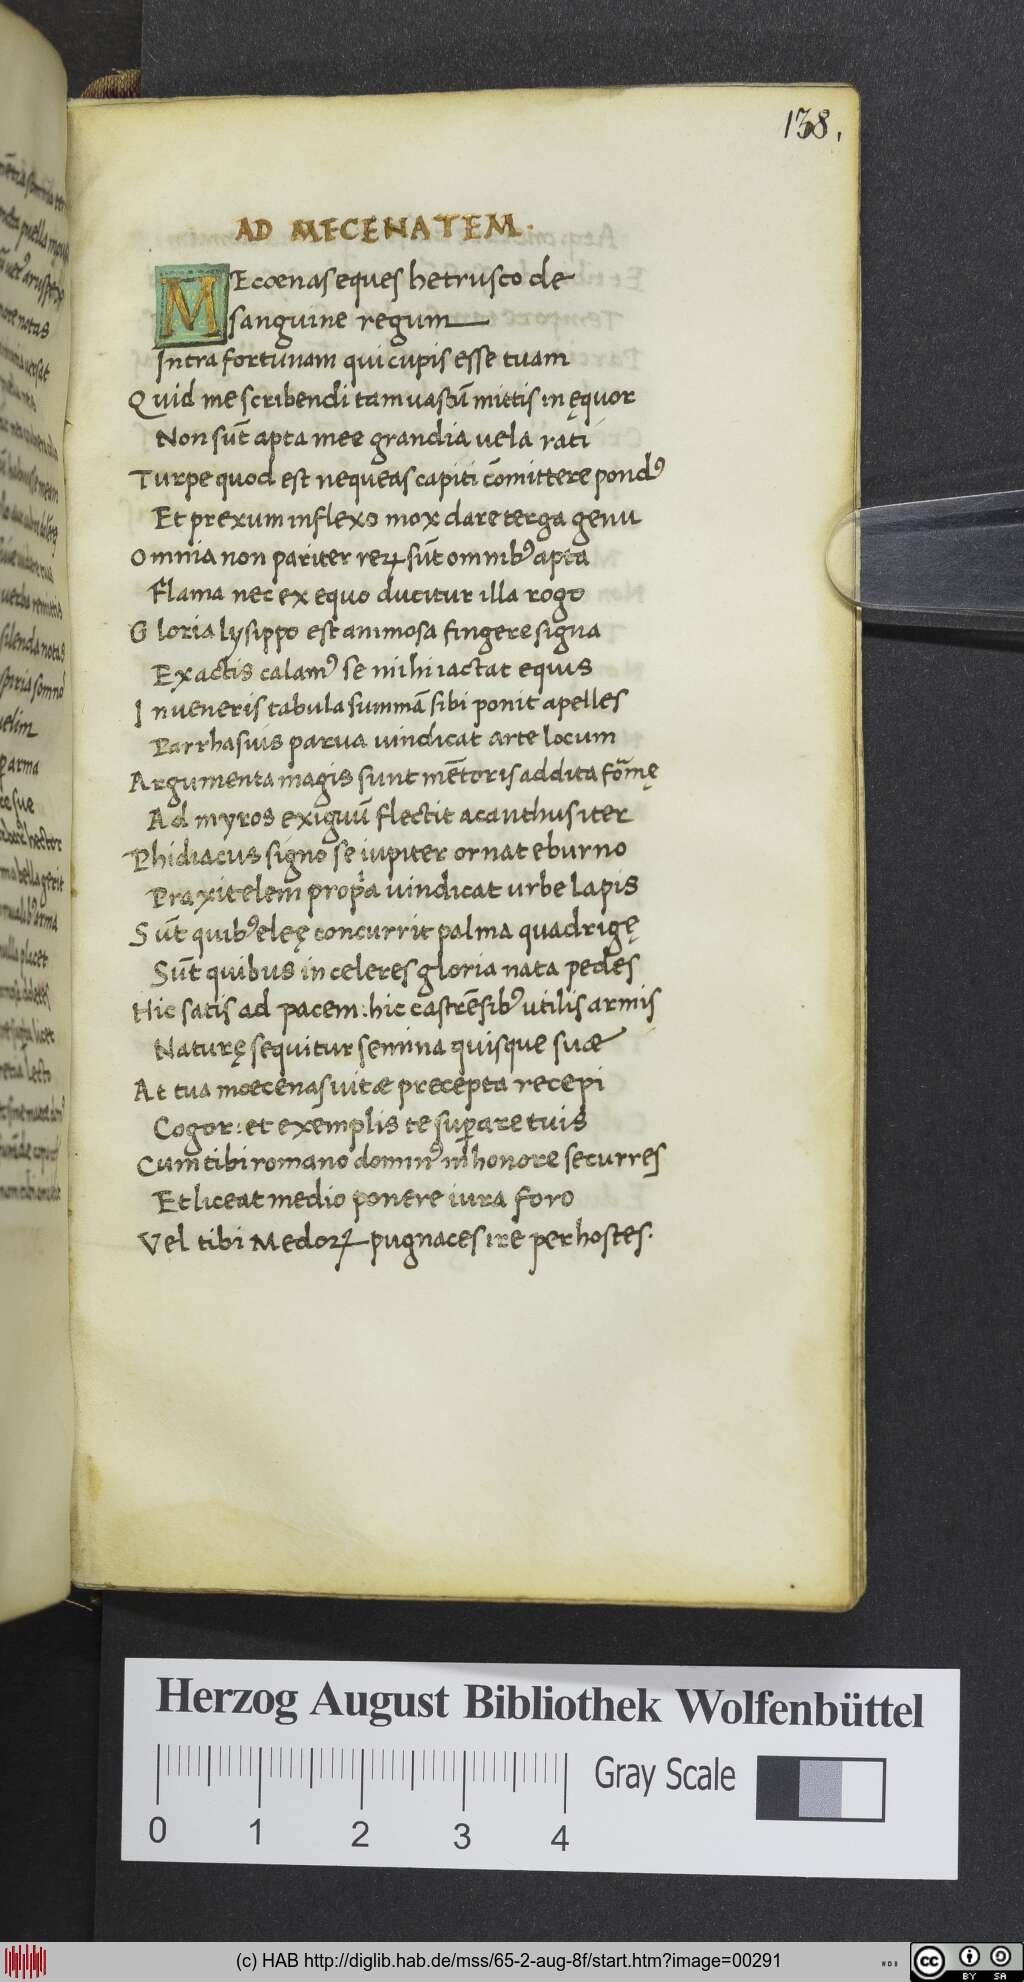 138.
AD MECENATEM.
MEcoenas eques hetrusco de
sanguine regum
Intra fortunam qui cupis esse tuam
Quid me scribendi tam uastū mittis in ęquor
Non sūt apta mee grandia uela rati
Turpe quod est nequeas capiti cōmittere pondꝰ
Et prexum inflexo mox dare terga genu
Omnia non pariter reꝝ sūt omnibꝰ apta
Flama nec ex equo ducitur illa rogo
Gloria lysippo est animosa fingere signa
Exactis calamꝰ se mihi iactat equis
In ueneris tabula summā sibi ponit apelles
Parrhasuis parua uindicat arte locum
Argumenta magis sunt mētoris addita formę
Ad myros exiguū flectit acanthus iter
Phidiacus signo se iupiter ornat eburno
Praxitelem propria uindicat urbe lapis
Sūt quibꝰ eleę concurrit palma quadrigę
Sūt quibus in celeres gloria nata pedes
Hic satis ad pacem: hic castrēsibꝰ utilis armis
Naturę sequitur semina quisque suæ
At tua moecenas uitæ precepta recepi
Cogor: et exemplis te suꝑare tuis
Cum tibi romano dominꝰ in honore securres
Et liceat medio ponere iura foro
Vel tibi Medoꝝ pugnaces ire per hostes.
Herzog August Bibliothek Wolfenbüttel
Gray Scale
0 1 2 3 4
(c) HAB http://diglib.hab.de/mss/65-2-aug-8f/start.htm?image=00291
cc BY SA